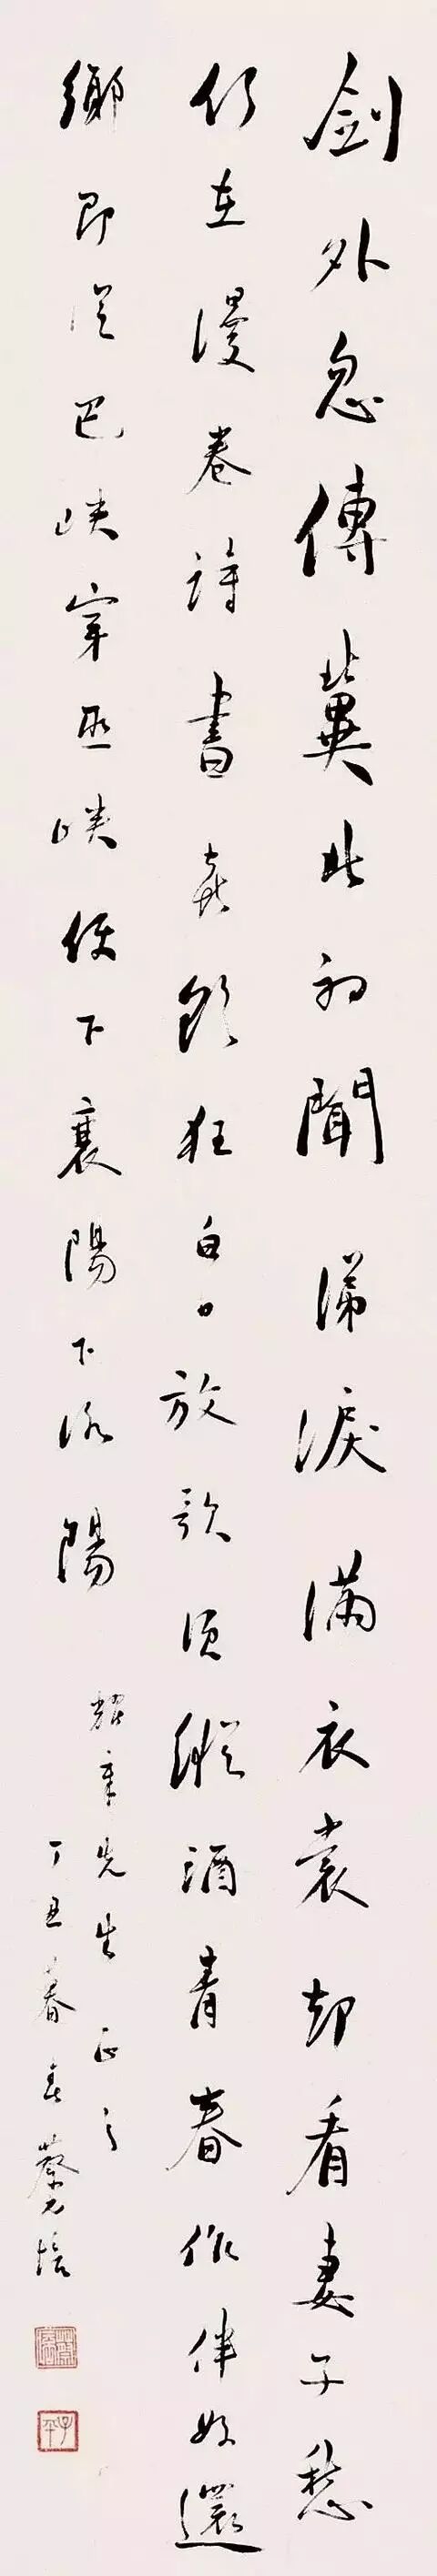 劍外忽傳冀北初聞涕淚滿衣裳却看妻子愁
何在漫卷詩書喜欲狂白日放歌須縱酒青春作伴好還
鄉即從巴峽穿巫峽便下襄陽下洛陽
耀章先生正之
丁丑暮春蔡元培